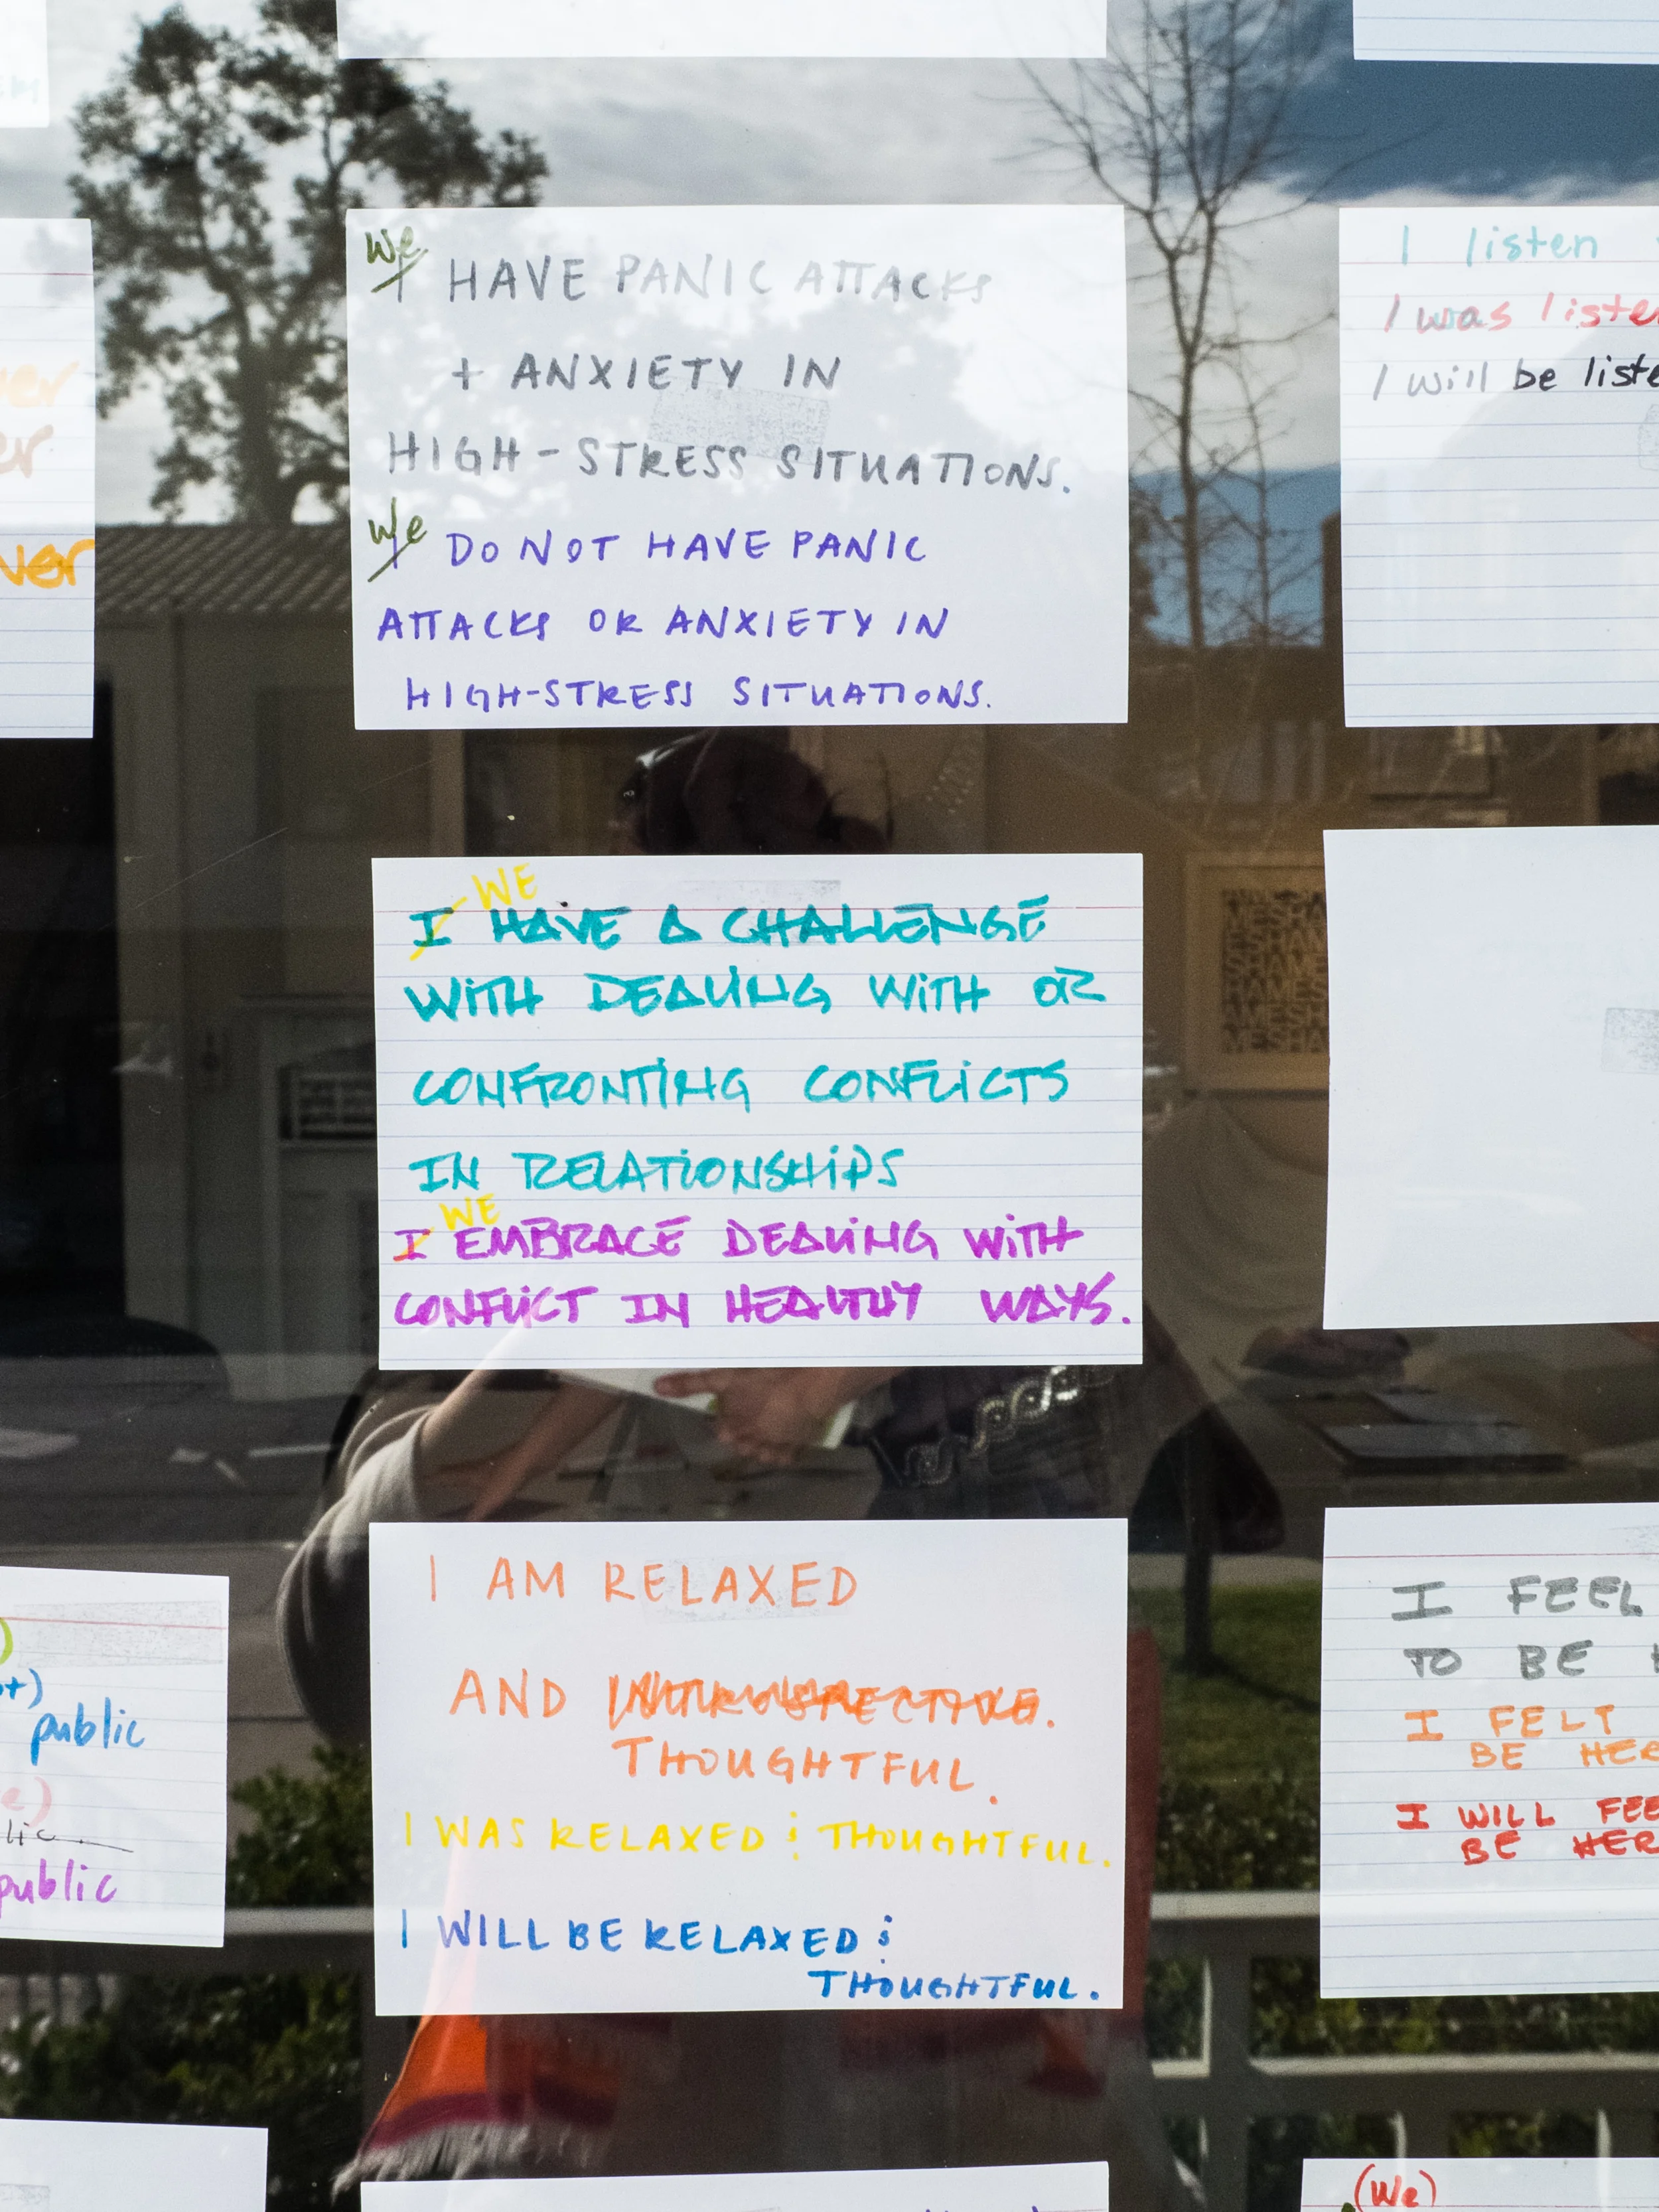 We
I HAVE PANIC ATTACKS
+ ANXIETY IN
HIGH-STRESS SITUATIONS.
We
I DO NOT HAVE PANIC
ATTACKS OR ANXIETY IN
HIGH-STRESS SITUATIONS.
I listen
I was
I will be
WE
I HAVE A CHALLENGE
WITH DEALING WITH OR
CONFRONTING CONFLICTS
IN RELATIONSHIPS
WE
I EMBRACE DEALING WITH
CONFLICT IN HEALTHY WAYS.
I AM RELAXED
AND INTROSPECTIVE.
THOUGHTFUL.
I WAS RELAXED & THOUGHTFUL.
I WILL BE RELAXED &
THOUGHTFUL.
public
public
I FEEL
TO BE
I FELT
BE
I WILL
BE
(We)